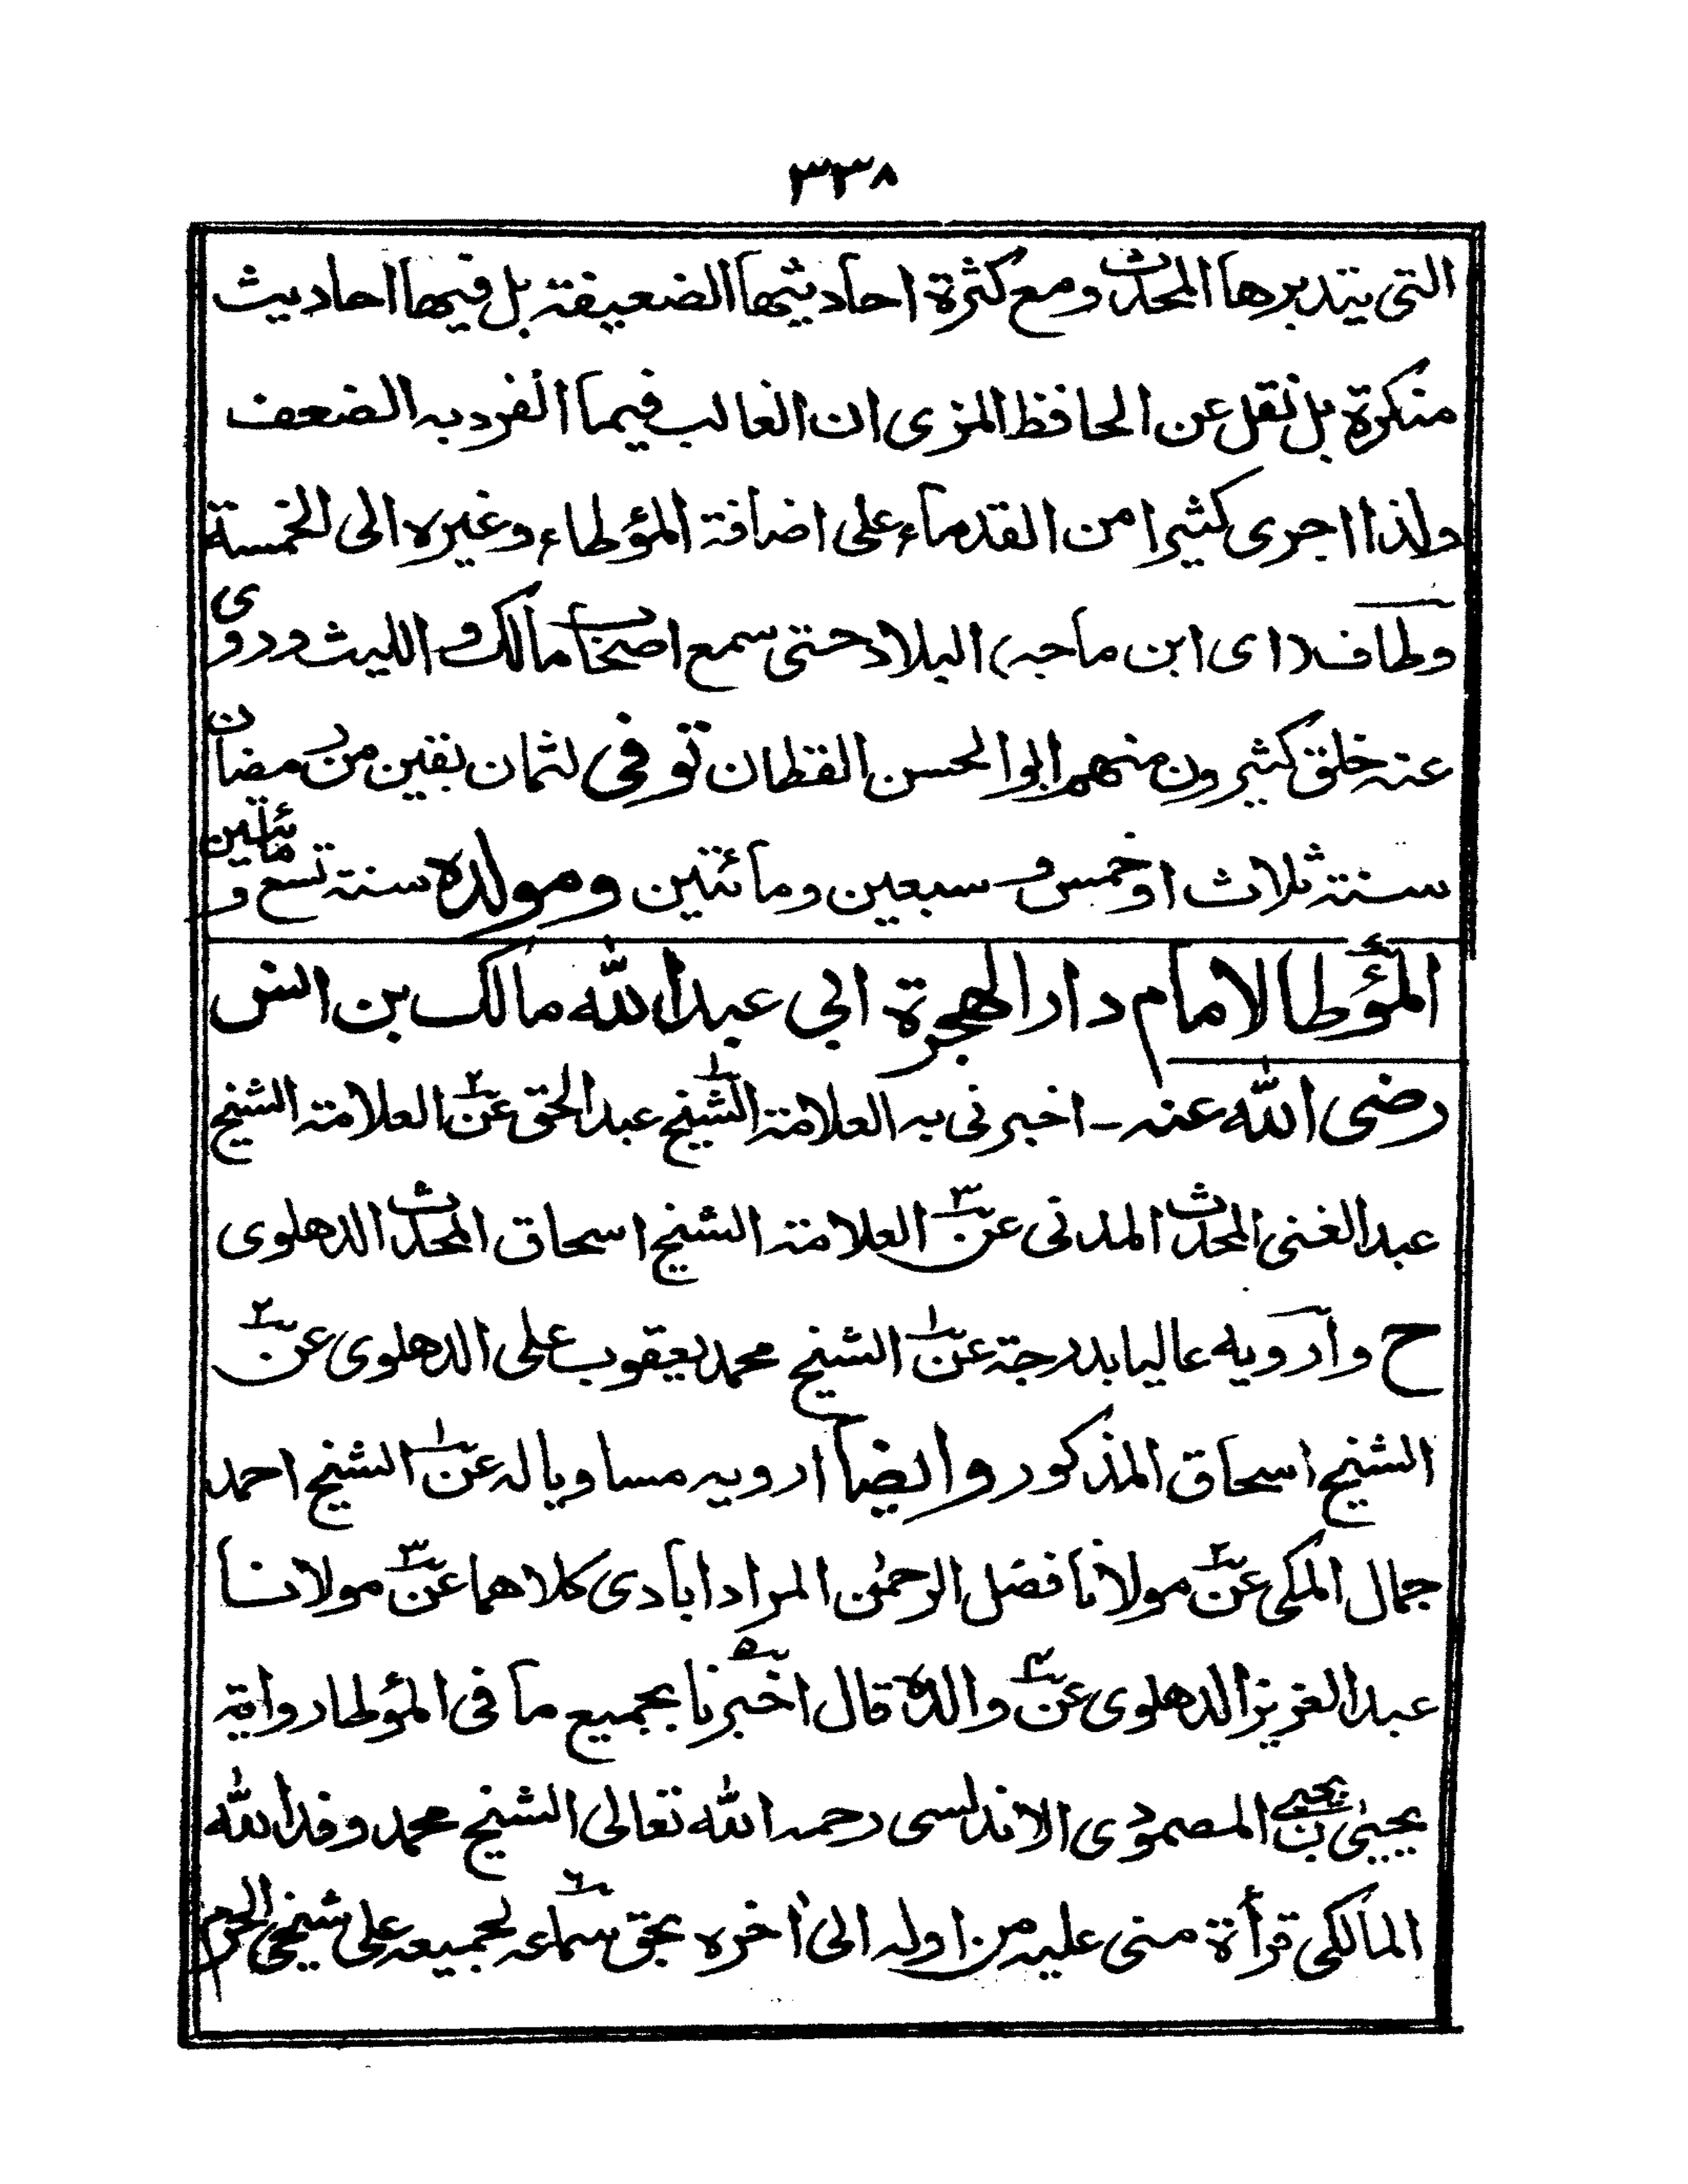 ٣٣٨
التى يتدبرها المحدث ومع كثرة احاديثها الضعيفة بل فيها احاديث
منكرة بل نقل عن الحافظ المزى ان الغالب فيما انفرد به الضعف
ولذا اجرى كثيرا من القدماء على اضافة المؤطاء وغيره الى الخمسة
وطاف (اى ابن ماجه) البلاد حتى سمع اصحاب مالك والليث وروى
عنه خلق كثيرون منهم ابوا لحسن القطان توفى لثمان بقين من رمضان
سنة ثلاث او خمس و سبعين ومائتين ومولده سنة تسع و مائتين
المؤطا لامام دار الهجرة ابى عبدالله مالك بن انس
رضى الله عنه - اخبرنى به العلامة الشيخ١ عبدالحق عن٢ العلامة الشيخ
عبدالغنى المحدث المدنى عن٣ العلامة الشيخ اسحاق المحدث الدهلوى
ح وأرويه عاليا بدرجة عن١ الشيخ محمد يعقوب على الدهلوى عن٢
الشيخ اسحاق المذكور وايضا ارويه مساويا له عن١ الشيخ احمد
جمال المكى عن٢ مولانا فضل الرحمٰن المراد ابادى كلاهما عن٣ مولانا
عبدالعزيز الدهلوى عن٤ والده قال اخبرنا٥ بجميع ما فى المؤطا رواية
يحيىٰ بن يحيى المصمودى الاندلسى رحمه الله تعالى الشيخ محمد وفدالله
المالكى قرأة منى عليه من اوله الى أخره بحق سماعه٦ لجميعه على شيخى الحرم